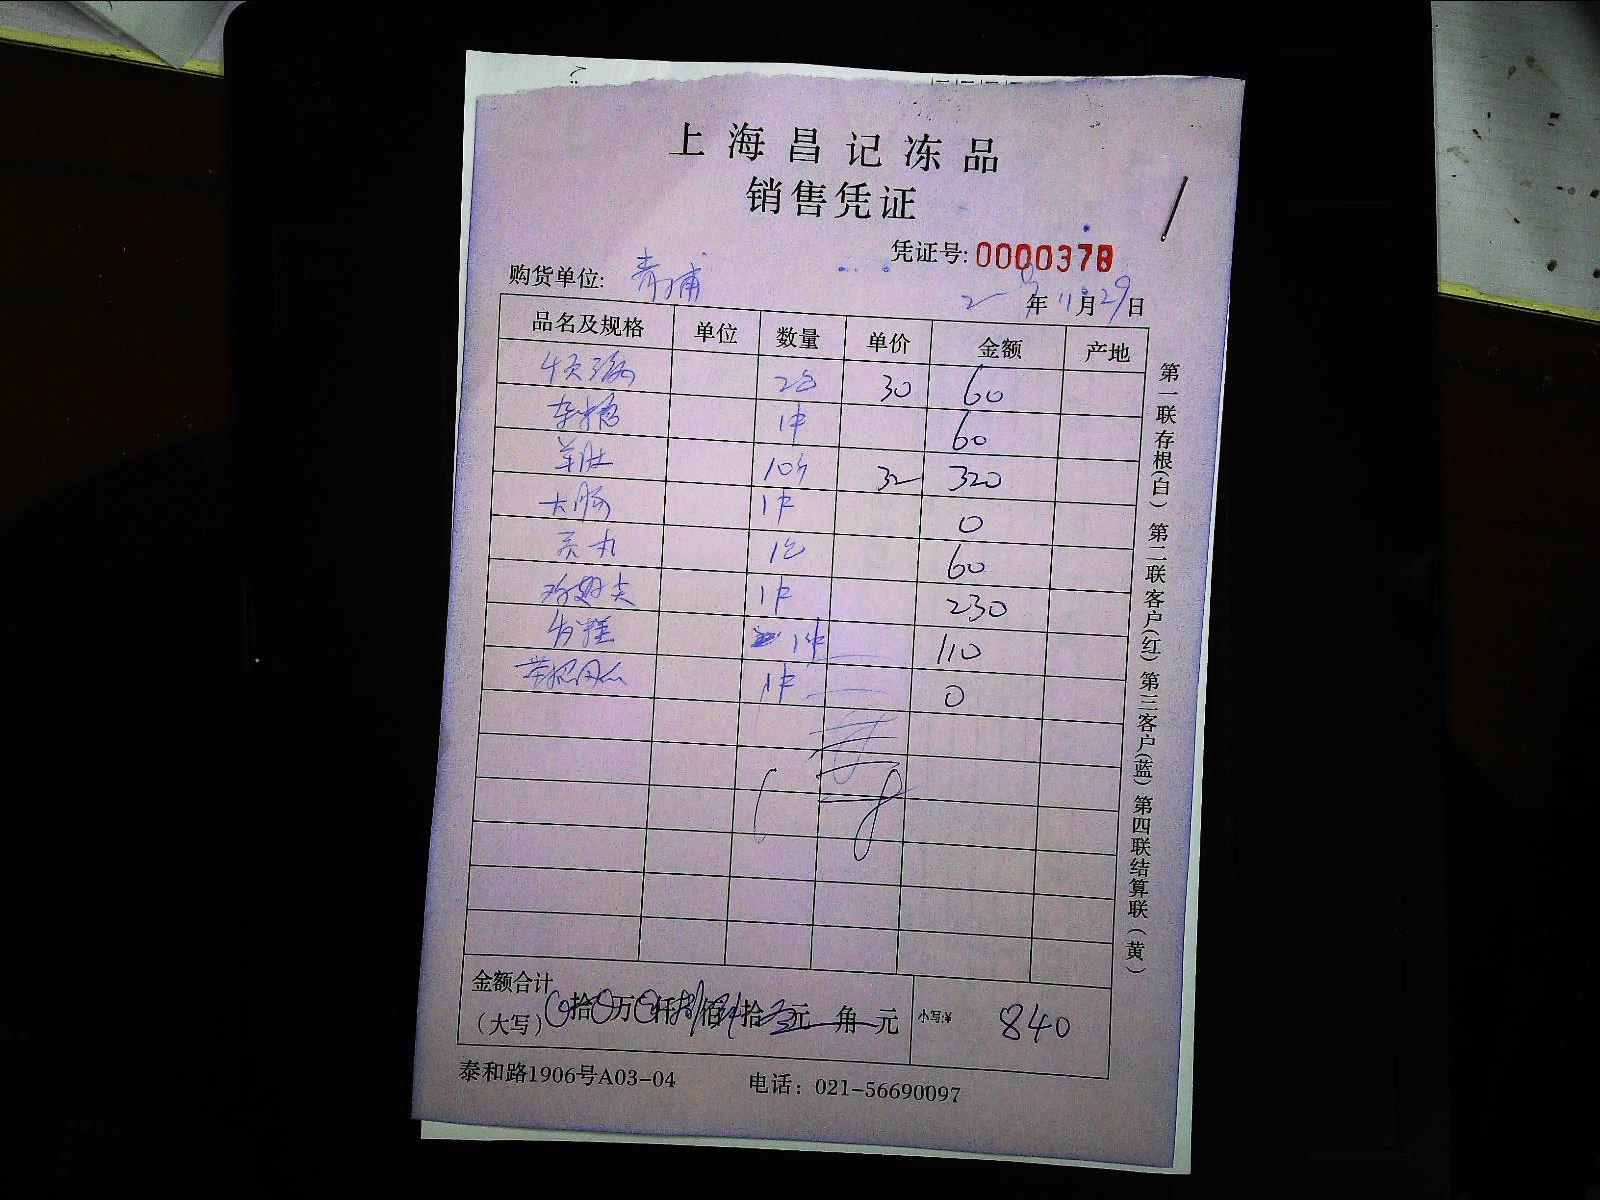 上海昌记冻品
销售凭证
凭证号: 0000378
购货单位: 青浦
年 11月29日
品名及规格 单位 数量 单价 金额 产地
2包 30 60
1件 60
羊肚 10斤 32 320
大肠 1件 0
贡丸 1包 60
鸡翅尖 1件 230
1件 110
1件 0
金额合计
(大写) 拾 万 仟 佰 拾 元 角 元 小写:¥ 840
泰和路1906号A03-04 电话：021-56690097
第一联存根(白) 第二联客户(红) 第三客户(蓝) 第四联结算联(黄)